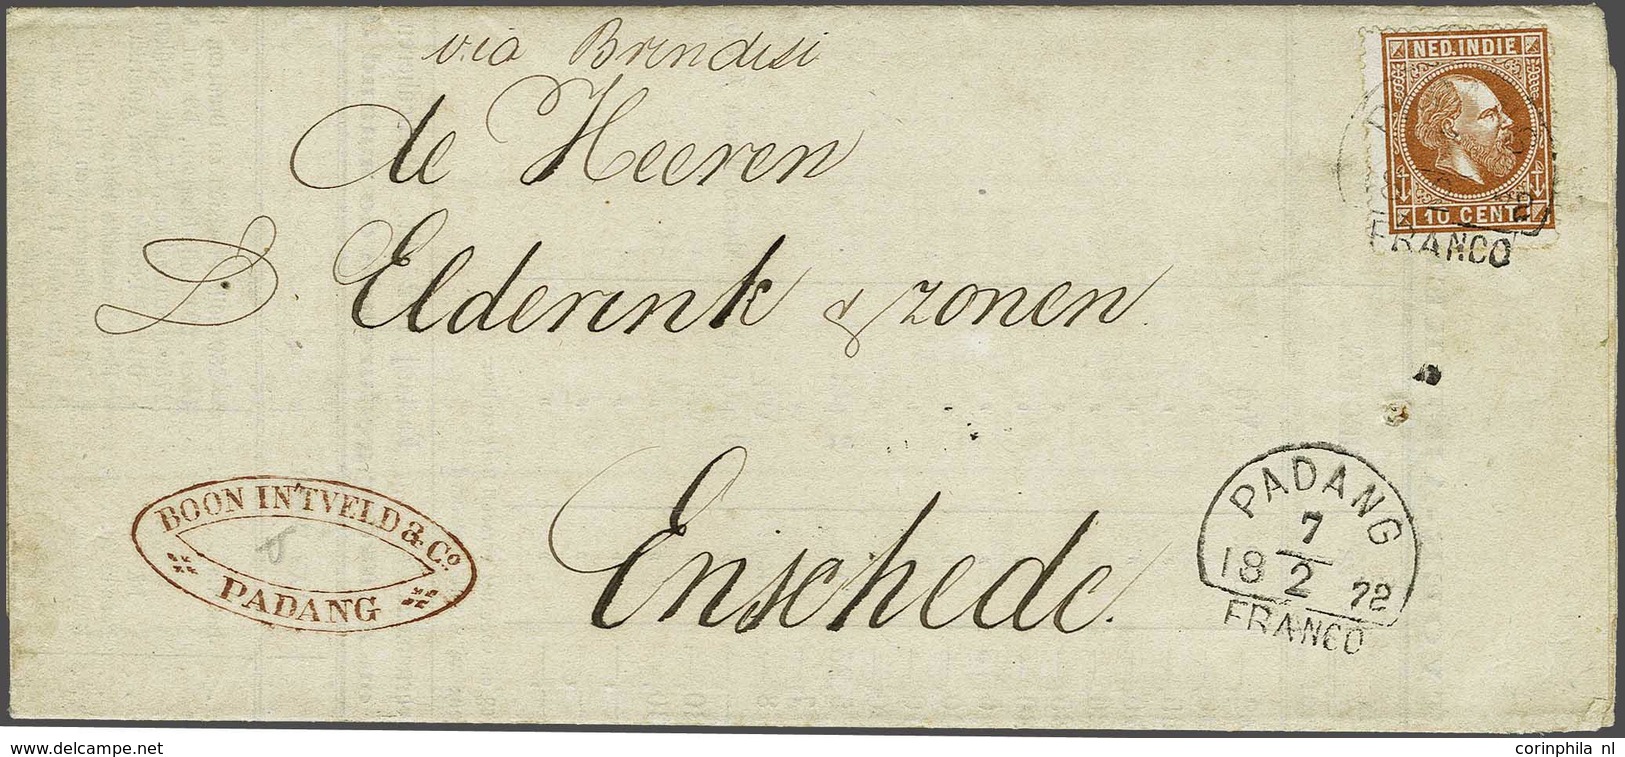 via Brindisi
NED. INDIE
10 CENT
FRANCO
de Heeren
D. Elderink & zonen
Enschede.
BOON IN'TVELD & Co.
PADANG
PADANG
7
18 2 72
FRANCO
www.delcampe.net
corinphila nl